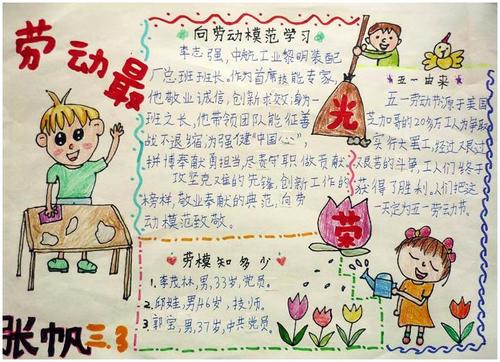 劳动最
光
荣
向劳动模范学习
李志强,中航工业黎明装配
厂总班班长。作为首席技能专家,
他敬业诚信,创新求效;身为一
班之长,他带领团队能征善
战不退缩,为强健“中国心”,
拼搏奉献勇担当,尽责守职做贡献
攻坚克难的先锋,创新工作的
榜样,敬业奉献的典范,向劳
动模范致敬。
五一由来
五一劳动节源于美国
芝加哥的20多万工人为争取
实行大罢工,经过又艮过
艰苦的斗争,工人们终于
获得了胜利。人们把这
一天定为五一劳动节。
劳模知多少
1.李茂林,男,33岁,党员。
2.邱娃,男46岁,技师。
3.郭宝,男,37岁,中共党员。
张帆 三.3